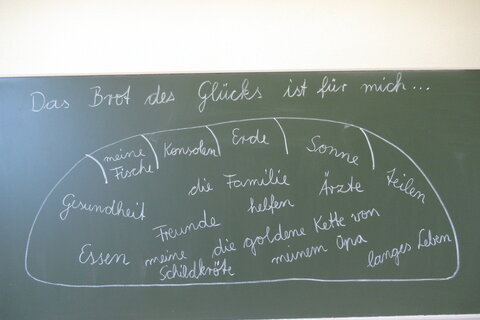 Das Brot des Glücks ist für mich...
meine
Fische
Konsolen
Erde
Sonne
teilen
die Familie
Ärzte
Gesundheit
Freunde
helfen
Essen
meine
Schildkröte
die goldene Kette von
meinem Opa
langes Leben